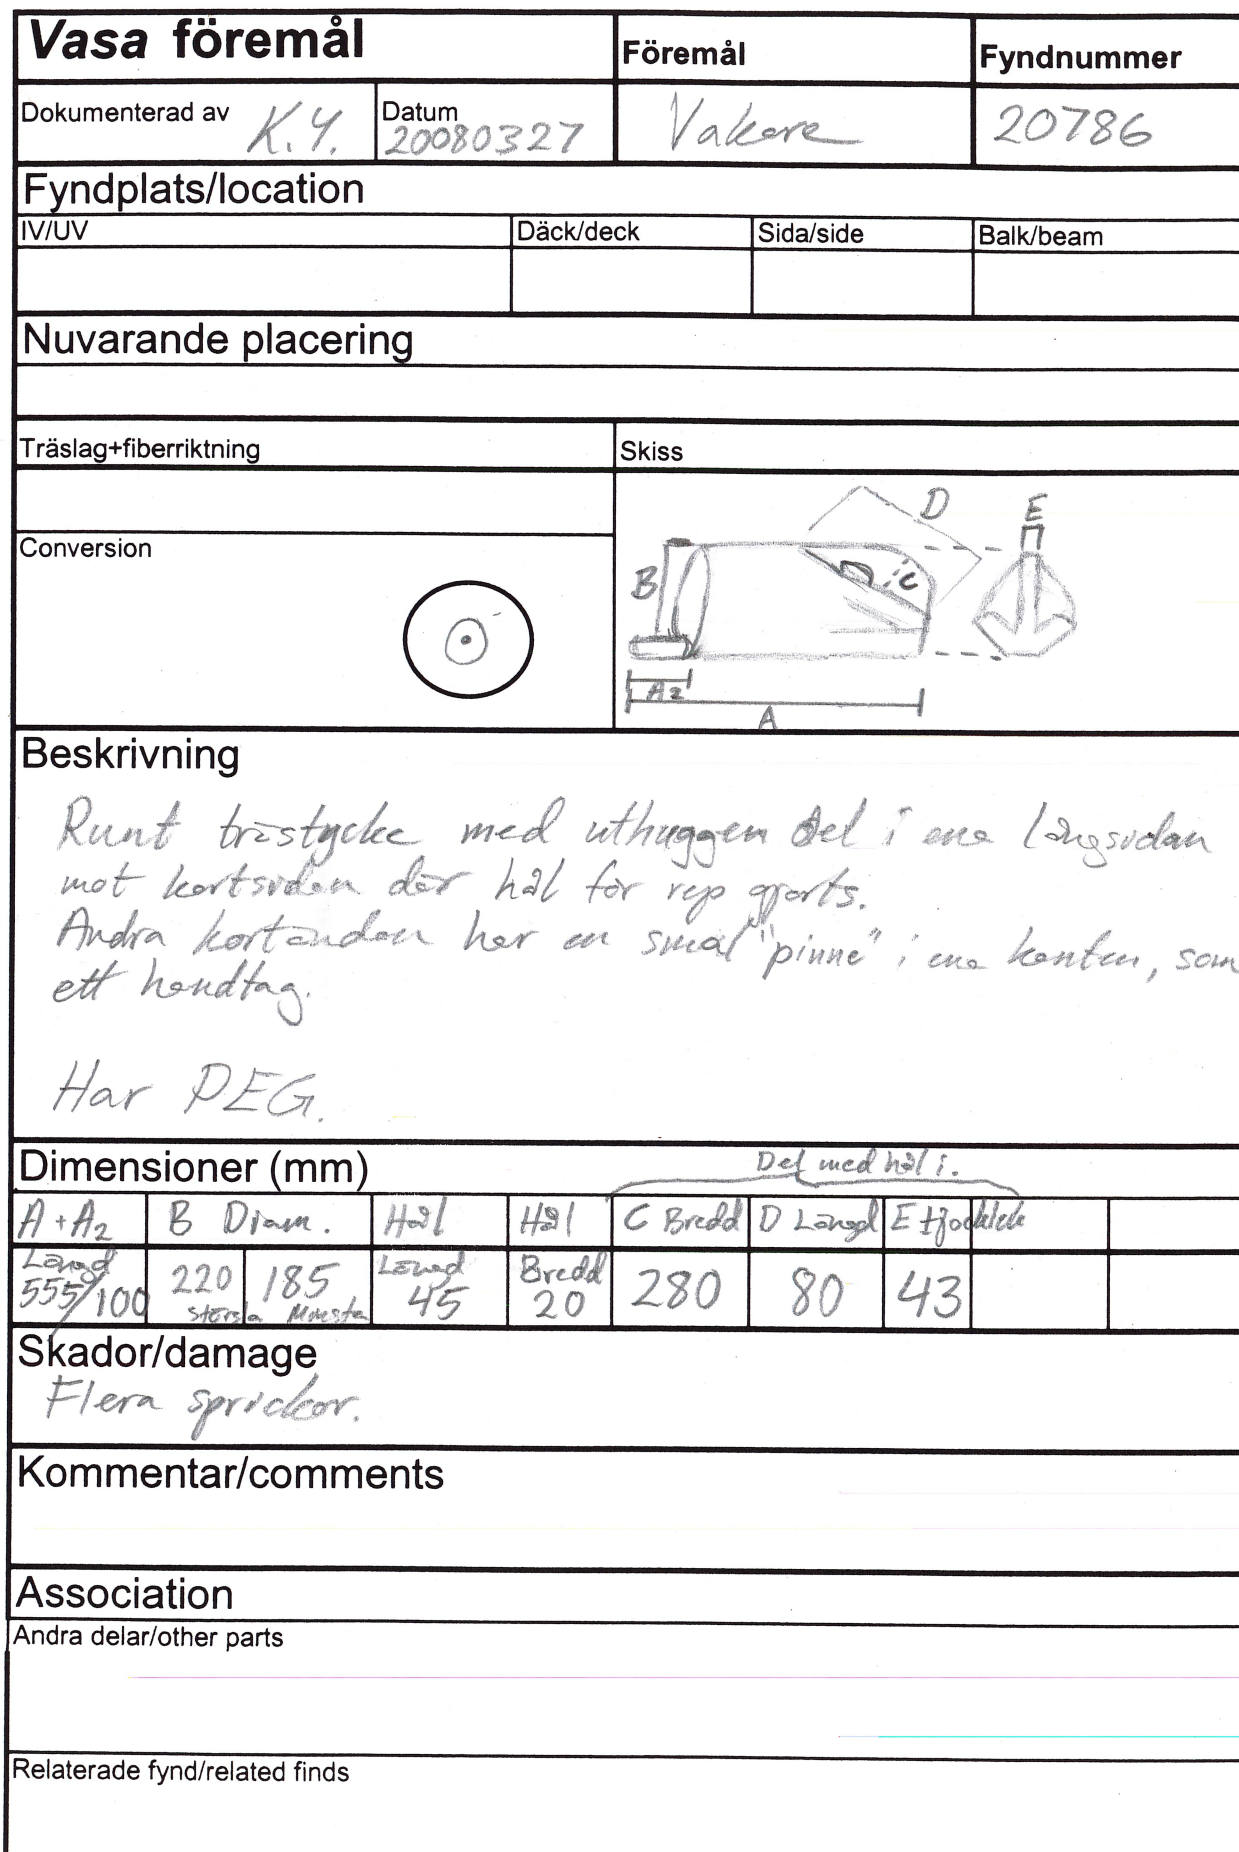 Vasa föremål
Föremål
Fyndnummer
Dokumenterad av K.Y.
Datum 20080327
Vakare
20786
Fyndplats/location
IV/UV
Däck/deck
Sida/side
Balk/beam
Nuvarande placering
Träslag+fiberriktning
Skiss
Conversion
D
E
B
C
A2
A
Beskrivning
Runt trästycke med uthuggen del i ena långsidan
mot kortsidan där hål för rep gjorts.
Andra kortändan har en smal "pinne" i ena kanten, som
ett handtag.
Har PEG.
Dimensioner (mm)
Del med hål i.
A + A2
B Diam.
Hål
Hål
C Bredd
D Längd
E tjocklek
Längd
555/100
220 största
185 Minsta
Längd
45
Bredd
20
280
80
43
Skador/damage
Flera sprickor.
Kommentar/comments
Association
Andra delar/other parts
Relaterade fynd/related finds